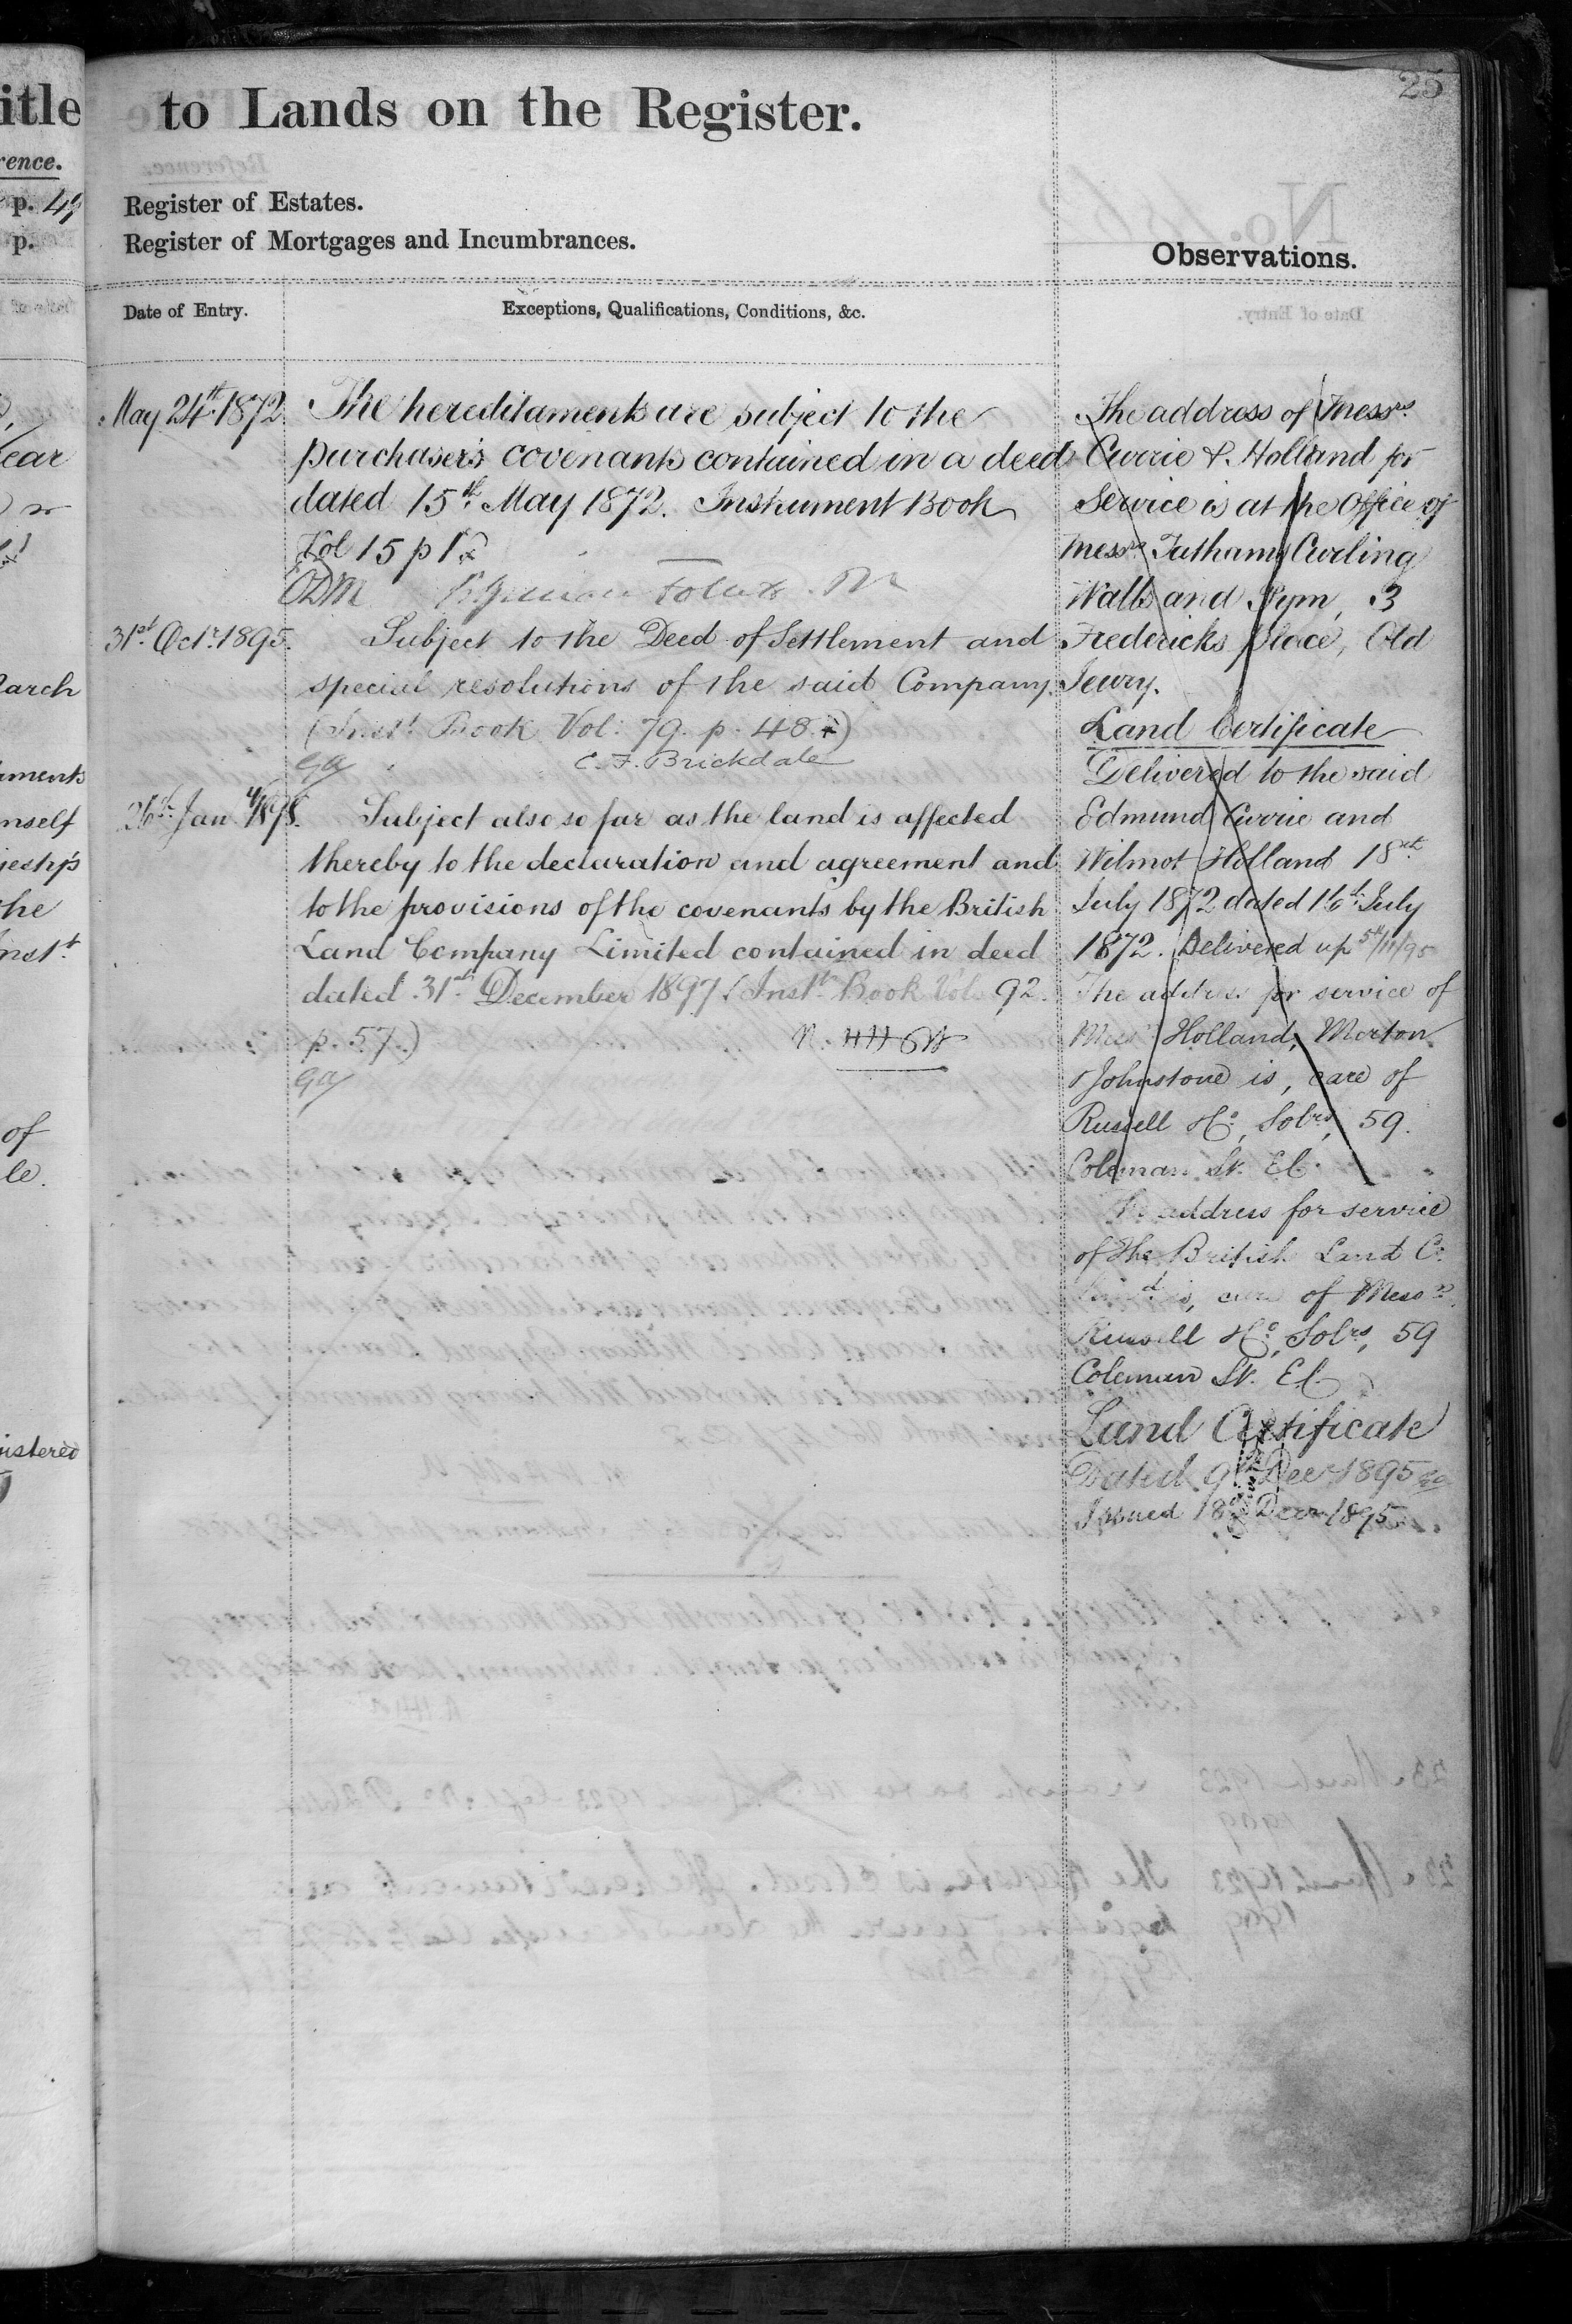 25
to Lands on the Register.
Register of Estates.
Register of Mortgages and Incumbrances.
Observations.
Date of Entry.
Exceptions, Qualifications, Conditions, &c.
May 24th 1872. The hereditaments are subject to the
purchaser's covenants contained in a deed
dated 15th May 1872. Instrument Book
Vol 15 p 1
31st Octr. 1895. Subject to the Deed of Settlement and
special resolutions of the said Company.
(Inst. Book Vol: 79. p. 48.)
C. F. Brickdale
26th Jan 1898. Subject also so far as the land is affected
thereby to the declaration and agreement and
to the provisions of the covenants by the British
Land Company Limited contained in deed
dated 31st December 1897. (Inst. Book Vol. 92.
p. 57.)
The address of Messrs
Currie & Holland for
Service is at the Office of
Messrs Tathams Curling
Walls and Pym, 3
Fredericks place, Old
Jewry.
Land Certificate
Delivered to the said
Edmund Currie and
Wilmot Holland 18th
July 1872 dated 16th July
1872. Delivered up 5th/11/95
The address for service of
Messrs Holland, Morton
& Johnstone is, care of
Russell & Co, Solrs, 59.
Coleman St. E.C.
The address for service
of the British Land Co.
Limd is, care of Messrs
Russell & Co, Solrs, 59
Coleman St. E.C.
Land Certificate
Dated 9th Decr 1895
Issued 18th Decr 1895
itle
rence.
p. 49
p.
ear
arch
ments
nself
jesty's
the
Inst.
of
le.
istered